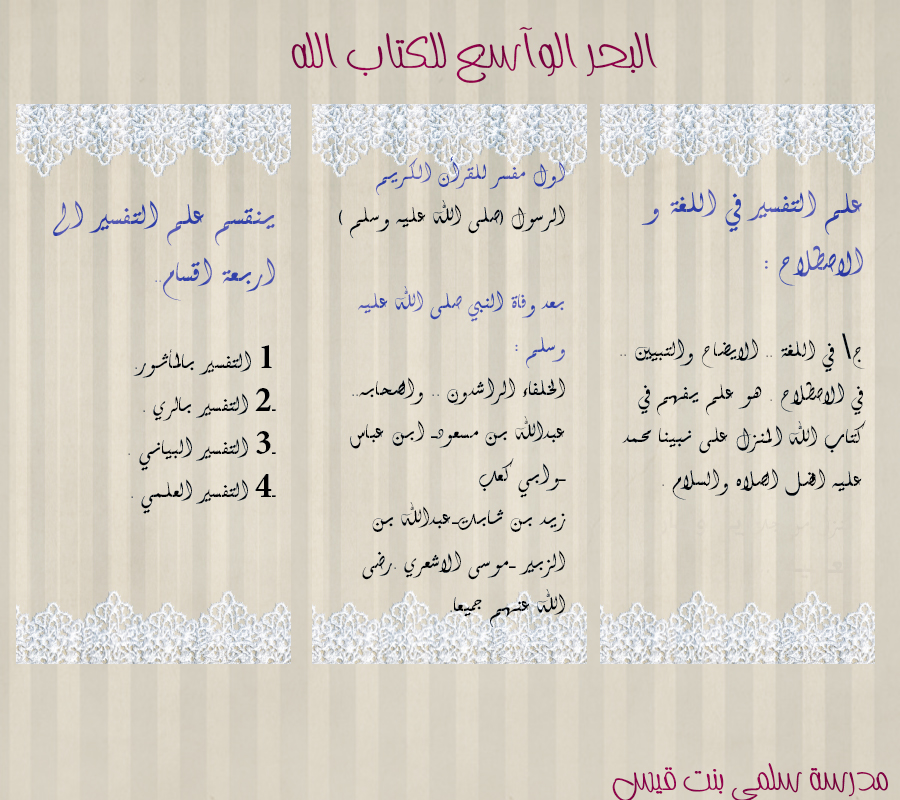 البحر الوآسع للكتاب الله
علم التفسير في اللغة و
الاصطلاح :
ج\ في اللغة .. الايضاح والتبيين ..
في الاصطلاح . هو علم يفهم في
كتاب الله المنزل على نبينا محمد
عليه افضل الصلاه والسلام .
اول مفسر للقرأن الكريم
الرسول (صلى الله عليه وسلم )
بعد وفاة النبي صلى الله عليه
وسلم :
الخلفاء الراشدون .. والصحابه..
عبدالله بن مسعود- ابن عباس
-وابي كعب
زيد بن ثابت-عبدالله بن
الزبير -موسى الاشعري .رضى
الله عنهم جميعا.
ينقسم علم التفسير الى
اربعة اقسام.
1 التفسير بالمأثور.
-2 التفسير بالري .
-3 التفسير البياني .
-4 التفسير العلمي .
مدرسة سلمى بنت قيس